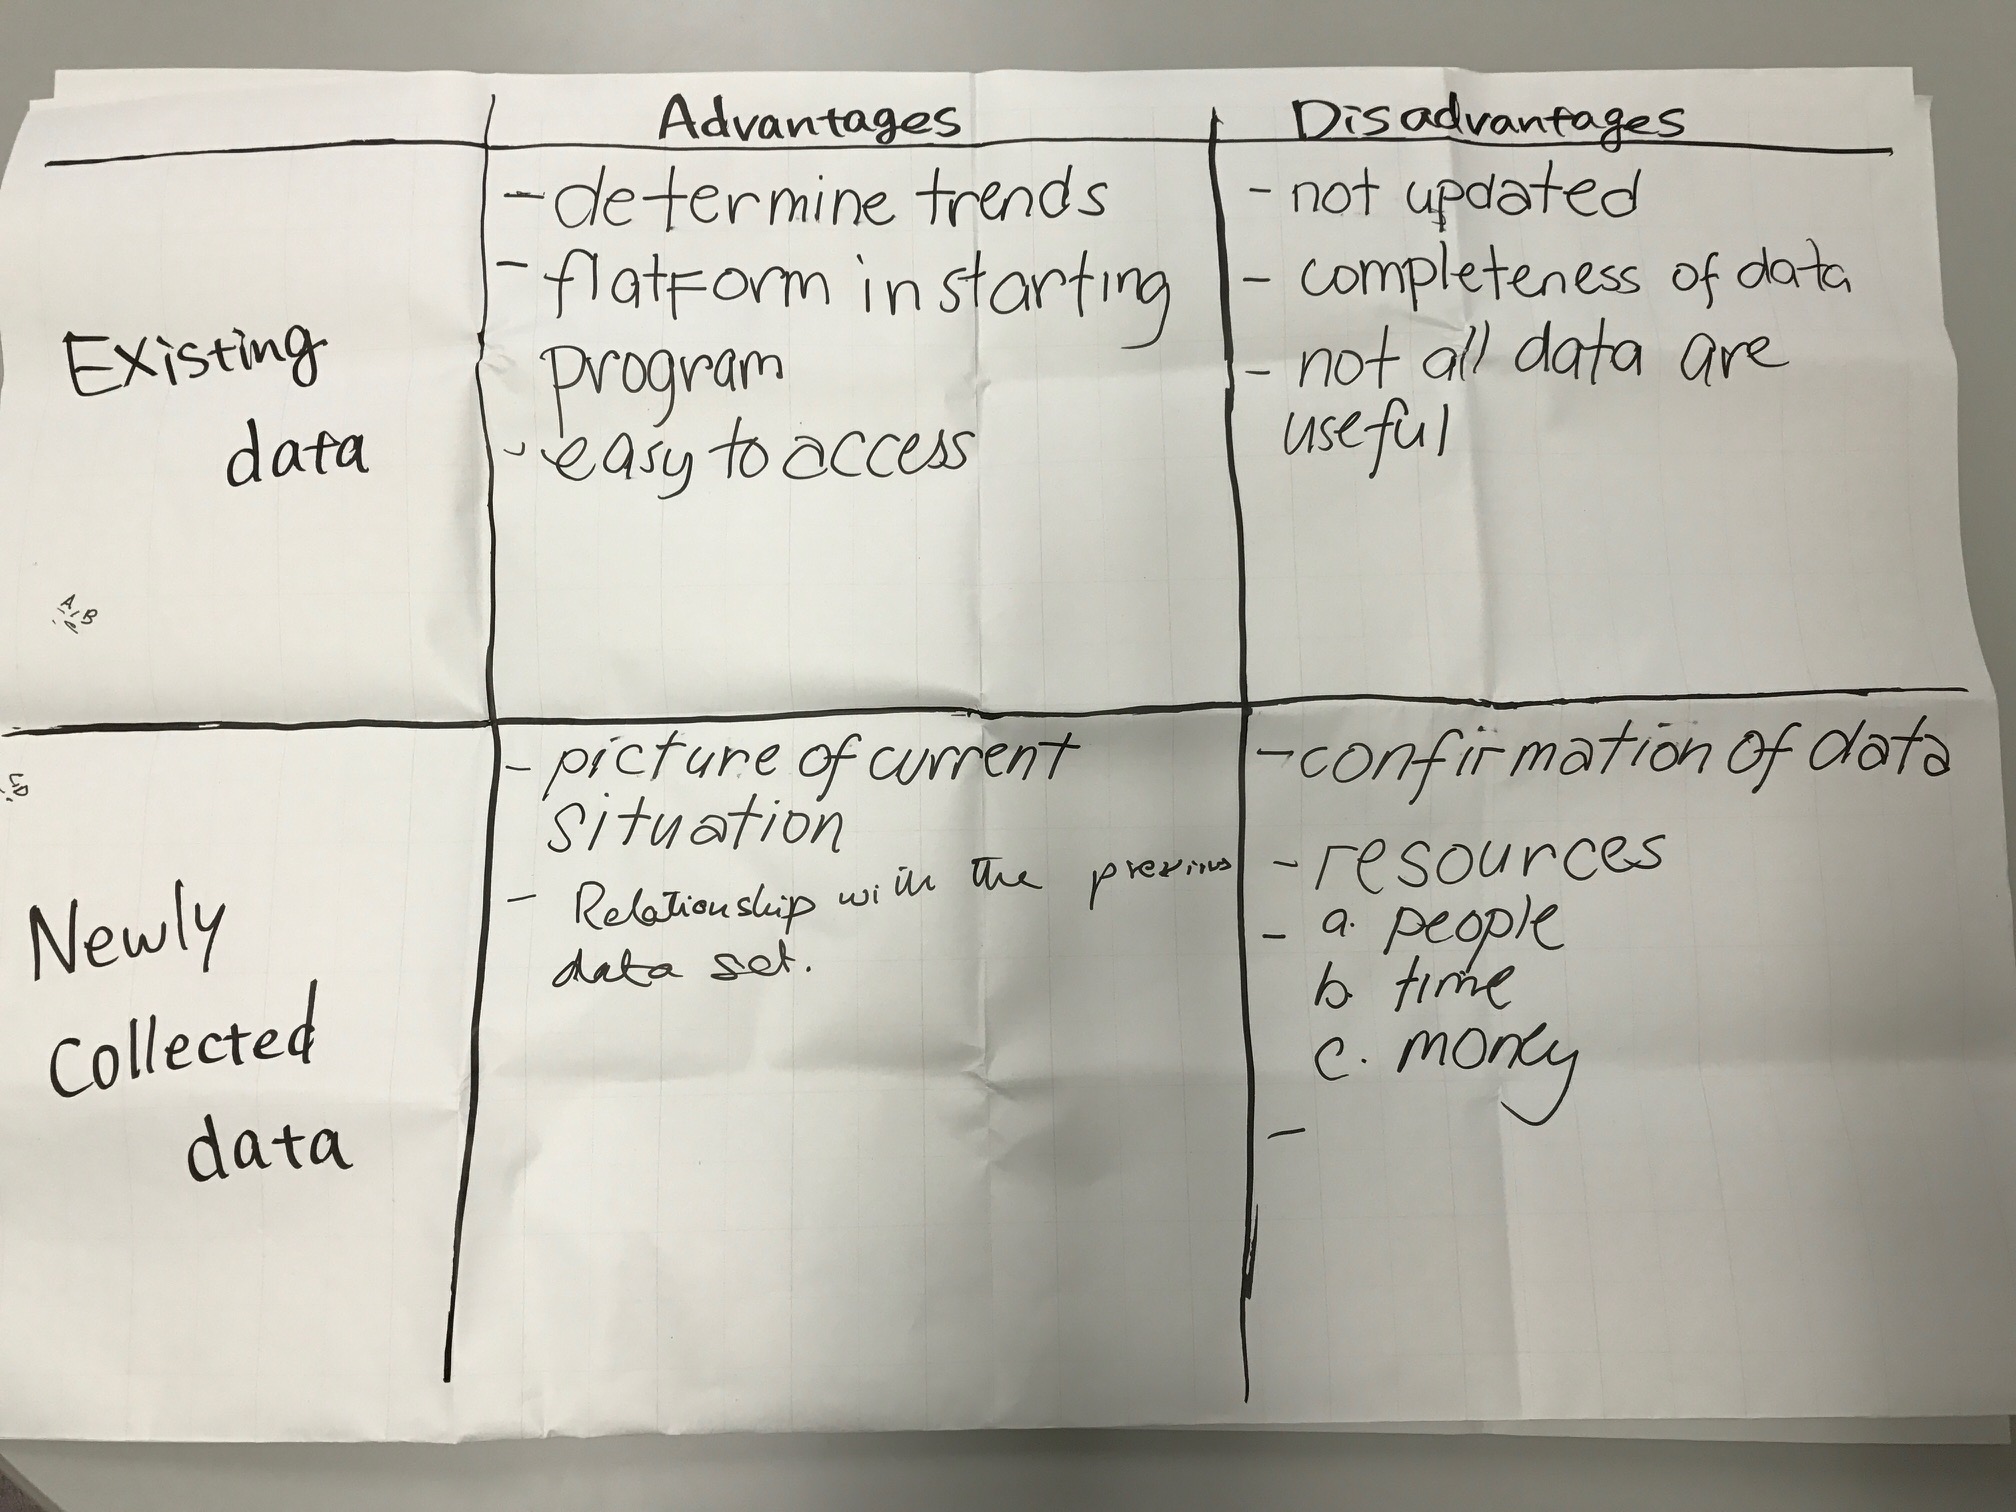 Advantages
Disadvantages
Existing
data
- determine trends
- flatform in starting
program
- easy to access
- not updated
- completeness of data
- not all data are
useful
A B
Newly
Collected
data
- picture of current
situation
- Relationship with the previous
data set.
- confirmation of data
- resources
- a. people
b. time
c. money
-